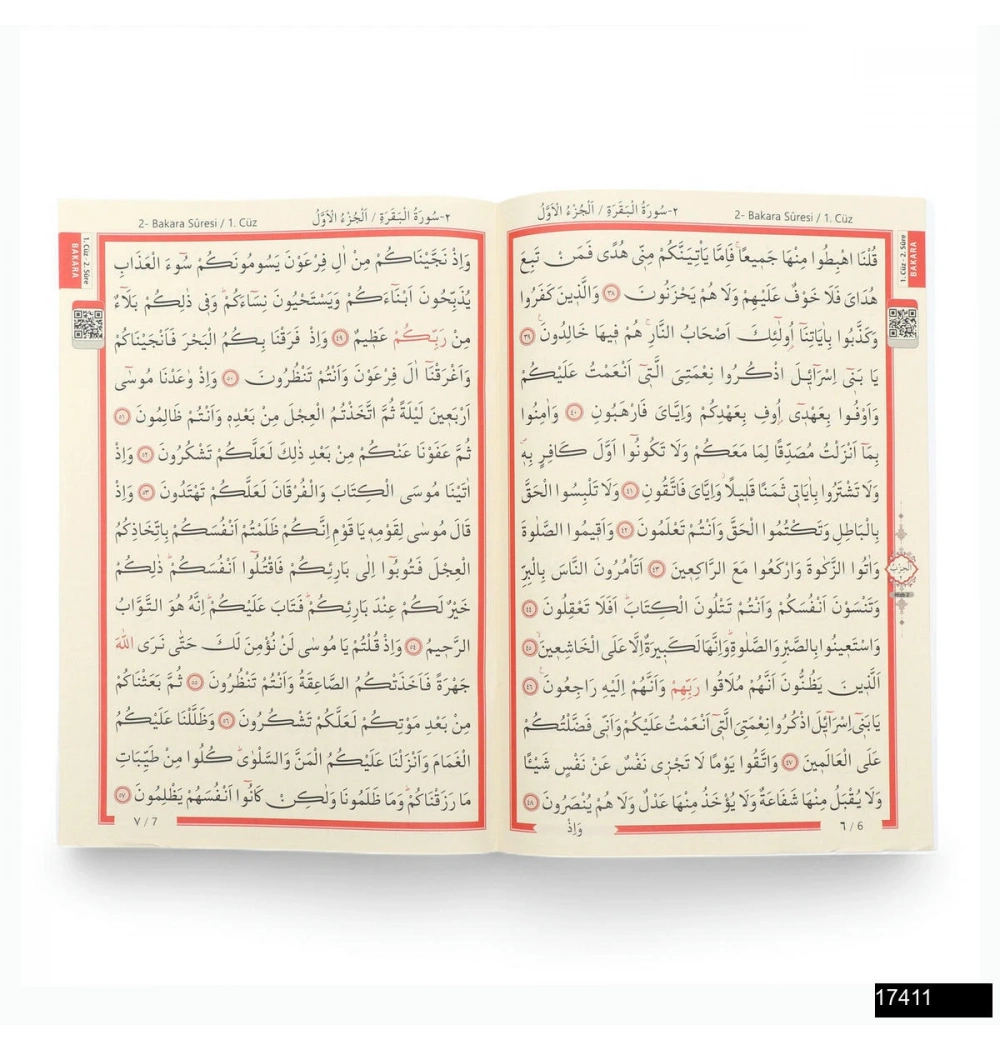 ٢-سُورَةُ الْبَقَرَةِ / اَلْجُزْءُ الْاَوَّلُ
2- Bakara Sûresi / 1. Cüz
1. Cüz - 2. Sûre
BAKARA
قُلْنَا اهْبِطُوا مِنْهَا جَمٖيعًاۚ فَاِمَّا يَأْتِيَنَّكُمْ مِنّٖى هُدًى فَمَنْ تَبِعَ
هُدَاىَ فَلَا خَوْفٌ عَلَيْهِمْ وَلَا هُمْ يَحْزَنُونَ ﴿٣٨﴾ وَالَّذٖينَ كَفَرُوا
وَكَذَّبُوا بِاٰيَاتِنَٓا اُو۬لٰٓئِكَ اَصْحَابُ النَّارِۚ هُمْ فٖيهَا خَالِدُونَ ﴿٣٩﴾
يَا بَنٖٓى اِسْرَٓائٖلَ اذْكُرُوا نِعْمَتِىَ الَّتٖٓى اَنْعَمْتُ عَلَيْكُمْ
وَاَوْفُوا بِعَهْدٖٓى اُو۫فِ بِعَهْدِكُمْ وَاِيَّاىَ فَارْهَبُونِ ﴿٤٠﴾ وَاٰمِنُوا
بِمَٓا اَنْزَلْتُ مُصَدِّقًا لِمَا مَعَكُمْ وَلَا تَكُونُٓوا اَوَّلَ كَافِرٍ بِهٖۖ
وَلَا تَشْتَرُوا بِاٰيَاتٖى ثَمَنًا قَلٖيلًاۘ وَاِيَّاىَ فَاتَّقُونِ ﴿٤١﴾ وَلَا تَلْبِسُوا الْحَقَّ
بِالْبَاطِلِ وَتَكْتُمُوا الْحَقَّ وَاَنْتُمْ تَعْلَمُونَ ﴿٤٢﴾ وَاَقٖيمُوا الصَّلٰوةَ
وَاٰتُوا الزَّكٰوةَ وَارْكَعُوا مَعَ الرَّاكِعٖينَ ﴿٤٣﴾ اَتَأْمُرُونَ النَّاسَ بِالْبِرِّ
وَتَنْسَوْنَ اَنْفُسَكُمْ وَاَنْتُمْ تَتْلُونَ الْكِتَابَۜ اَفَلَا تَعْقِلُونَ ﴿٤٤﴾
وَاسْتَعٖينُوا بِالصَّبْرِ وَالصَّلٰوةِۜ وَاِنَّهَا لَكَبٖيرَةٌ اِلَّا عَلَى الْخَاشِعٖينَۙ ﴿٤٥﴾
اَلَّذٖينَ يَظُنُّونَ اَنَّهُمْ مُلَاقُوا رَبِّهِمْ وَاَنَّهُمْ اِلَيْهِ رَاجِعُونَ۟ ﴿٤٦﴾
يَا بَنٖٓى اِسْرَٓائٖلَ اذْكُرُوا نِعْمَتِىَ الَّتٖٓى اَنْعَمْتُ عَلَيْكُمْ وَاَنّٖى فَضَّلْتُكُمْ
عَلَى الْعَالَمٖينَ ﴿٤٧﴾ وَاتَّقُوا يَوْمًا لَا تَجْزٖى نَفْسٌ عَنْ نَفْسٍ شَيْـًٔا
وَلَا يُقْبَلُ مِنْهَا شَفَاعَةٌ وَلَا يُؤْخَذُ مِنْهَا عَدْلٌ وَلَا هُمْ يُنْصَرُونَ ﴿٤٨﴾
اَلْحِزْبُ
Hizb 2
٦ / 6
وَاِذْ
٢-سُورَةُ الْبَقَرَةِ / اَلْجُزْءُ الْاَوَّلُ
2- Bakara Sûresi / 1. Cüz
1. Cüz - 2. Sûre
BAKARA
وَاِذْ نَجَّيْنَاكُمْ مِنْ اٰلِ فِرْعَوْنَ يَسُومُونَكُمْ سُٓوءَ الْعَذَابِ
يُذَبِّحُونَ اَبْنَٓاءَكُمْ وَيَسْتَحْيُونَ نِسَٓاءَكُمْۜ وَفٖى ذٰلِكُمْ بَلَٓاءٌ
مِنْ رَبِّكُمْ عَظٖيمٌ ﴿٤٩﴾ وَاِذْ فَرَقْنَا بِكُمُ الْبَحْرَ فَاَنْجَيْنَاكُمْ
وَاَغْرَقْنَٓا اٰلَ فِرْعَوْنَ وَاَنْتُمْ تَنْظُرُونَ ﴿٥٠﴾ وَاِذْ وٰعَدْنَا مُوسٰٓى
اَرْبَعٖينَ لَيْلَةً ثُمَّ اتَّخَذْتُمُ الْعِجْلَ مِنْ بَعْدِهٖ وَاَنْتُمْ ظَالِمُونَ ﴿٥١﴾
ثُمَّ عَفَوْنَا عَنْكُمْ مِنْ بَعْدِ ذٰلِكَ لَعَلَّكُمْ تَشْكُرُونَ ﴿٥٢﴾ وَاِذْ
اٰتَيْنَا مُوسَى الْكِتَابَ وَالْفُرْقَانَ لَعَلَّكُمْ تَهْتَدُونَ ﴿٥٣﴾ وَاِذْ
قَالَ مُوسٰى لِقَوْمِهٖ يَا قَوْمِ اِنَّكُمْ ظَلَمْتُمْ اَنْفُسَكُمْ بِاتِّخَاذِكُمُ
الْعِجْلَ فَتُوبُٓوا اِلٰى بَارِئِكُمْ فَاقْتُلُٓوا اَنْفُسَكُمْۜ ذٰلِكُمْ
خَيْرٌ لَكُمْ عِنْدَ بَارِئِكُمْۜ فَتَابَ عَلَيْكُمْۜ اِنَّهُ هُوَ التَّوَّابُ
الرَّحٖيمُ ﴿٥٤﴾ وَاِذْ قُلْتُمْ يَا مُوسٰى لَنْ نُؤْمِنَ لَكَ حَتّٰى نَرَى اللّٰهَ
جَهْرَةً فَاَخَذَتْكُمُ الصَّاعِقَةُ وَاَنْتُمْ تَنْظُرُونَ ﴿٥٥﴾ ثُمَّ بَعَثْنَاكُمْ
مِنْ بَعْدِ مَوْتِكُمْ لَعَلَّكُمْ تَشْكُرُونَ ﴿٥٦﴾ وَظَلَّلْنَا عَلَيْكُمُ
الْغَمَامَ وَاَنْزَلْنَا عَلَيْكُمُ الْمَنَّ وَالسَّلْوٰىۜ كُلُوا مِنْ طَيِّبَاتِ
مَا رَزَقْنَاكُمْۜ وَمَا ظَلَمُونَا وَلٰكِنْ كَانُٓوا اَنْفُسَهُمْ يَظْلِمُونَ ﴿٥٧﴾
٧ / 7
17411